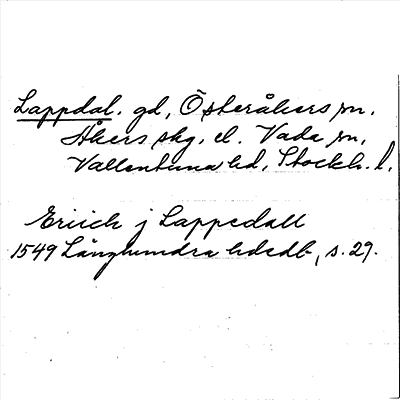 Lappdal. gd, Österåkers sn,
Åkers skg. el. Vada sn,
Vallentuna hd, Stockh. l.
Eriich j Lappedall
1549 Långhundra hdsdb, s. 29.